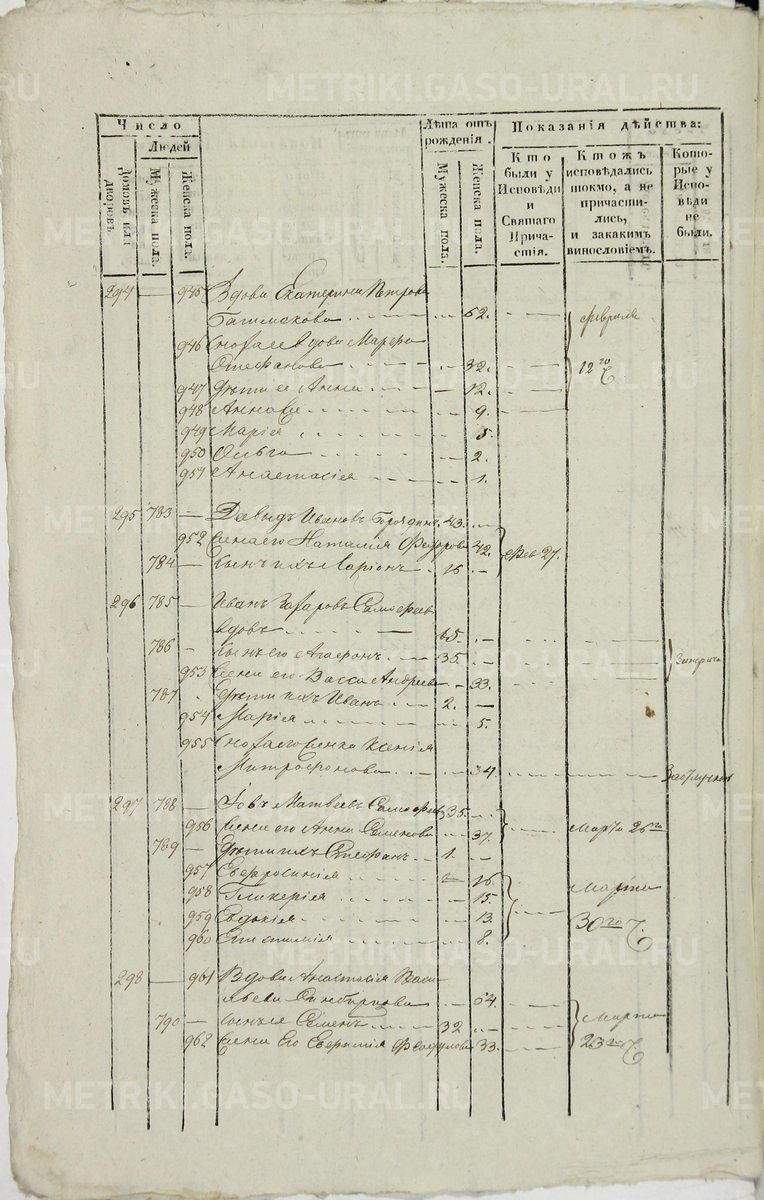 METRIKI.GASO-URAL.RU
Число
Людей
Домовъ или дворовъ.
Мужеска пола.
Женска пола.
Лѣта отъ рожденія.
Мужеска пола.
Женска пола.
Показанія дѣйства:
Кто были у Исповѣди и Святаго Причастія.
Ктожъ исповѣдались токмо, а не причастились, и закакимъ винословіемъ.
Которые у Исповѣди не были.
294 — 945 Вдова Екатерина Петрова
62. февраля
946 вдова Марѳа
Стефанова 32. 12го
947 Дѣти ее Анна 12.
948 9.
949 Марія 5.
950 Ольга 2.
951 Анастасія 1.
295 783 — Давыдъ Ивановъ 43.
952 Жена его Наталія Федорова 42. Фев 27.
784 — Сынъ ихъ Ларіонъ 16
296 785 — Иванъ
вдовъ 65.
786 — Сынъ его Агафонъ 35.
953 Жена его Васса Андреева 33.
787 Дѣти ихъ Иванъ 2. —
954 Марія 5.
955 Ксенія
Митрофанова 34
297 788 — Іовъ Матвеевъ 35.
956 Жена его Анна Семенова 37. Марта 26го
789 — Дѣти ихъ Стефанъ 1. —
957 Евфросинія 16.
958 Гликерія 15. Марта
959 Евдокія 13. 30го
960 8.
298 — 961 Вдова Анастасія Васи-
льева 54.
790 — Сынъ ея Семенъ 32 Марта
962 Жена Его 33. 23го